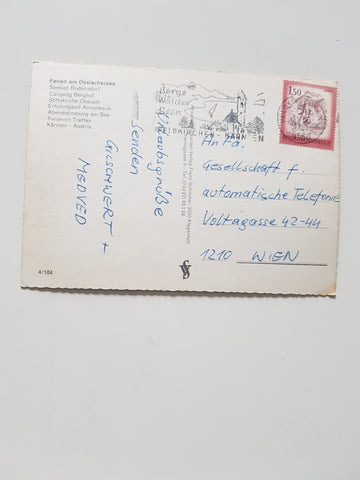 Ferien am Ossiachersee
Seebad Bodensdorf
Camping Berghof
Stiftskirche Ossiach
Erholungsort Annenheim
Abendstimmung am See
Ferienort Treffen
Kärnten - Austria
Berge
Wälder
Seen
FELDKIRCHEN - KÄRNTEN
150
An Fa.
Gesellschaft f.
automatische Telefonie
Voltagasse 42-44
1210 WIEN
Urlaubsgrüße
senden
GLSCHWERT +
MEDVED
4/104